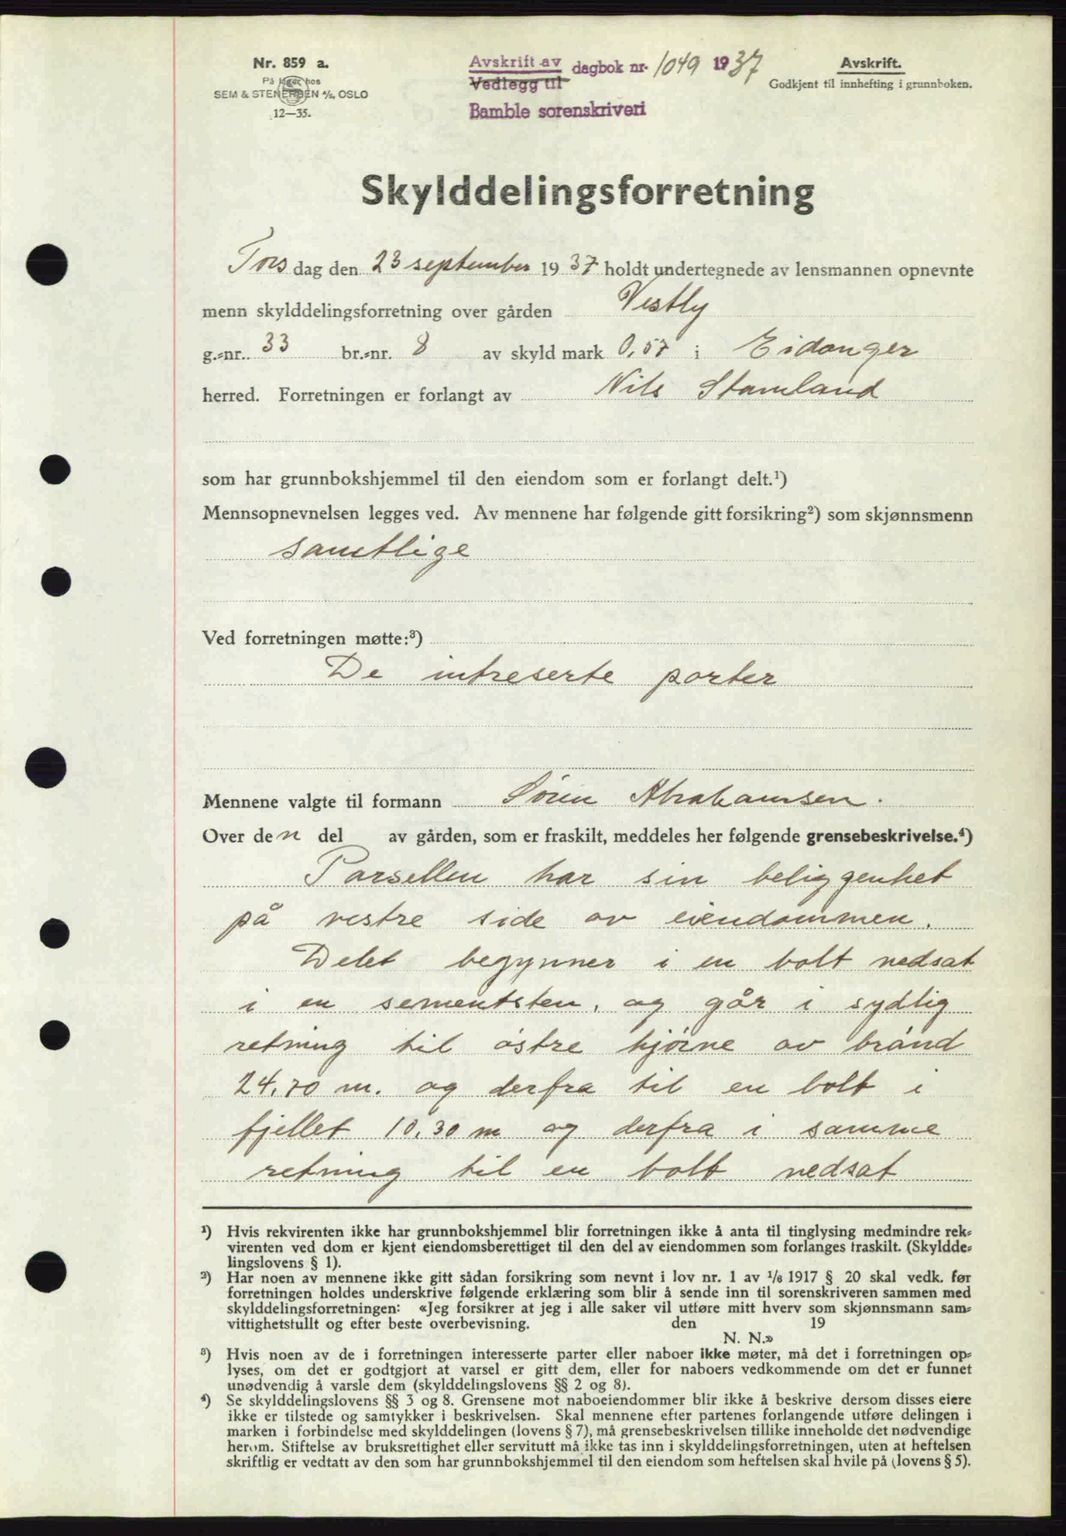 Nr. 859 a.
På lager hos
SEM & STENERSEN A/S, OSLO
12—35.
Avskrift av
Vedlegg til
dagbok nr. 1049 1937
Bamble sorenskriveri
Avskrift.
Godkjent til innhefting i grunnboken.
Skylddelingsforretning
Tors dag den 23 september 1937 holdt undertegnede av lensmannen opnevnte
menn skylddelingsforretning over gården Vestly
g.-nr. 33 br.-nr. 8 av skyld mark 0,57 i Eidanger
herred. Forretningen er forlangt av Nils Stamland
som har grunnbokshjemmel til den eiendom som er forlangt delt.¹)
Mennsopnevnelsen legges ved. Av mennene har følgende gitt forsikring²) som skjønnsmenn
samtlige
Ved forretningen møtte:³)
De intreserte parter
Mennene valgte til formann Søren Abrahamsen.
Over den del av gården, som er fraskilt, meddeles her følgende grensebeskrivelse.⁴)
Parsellen har sin beliggenhet
på vestre side av eiendommen.
Delet begynner i en bolt nedsat
i en sementsten, og går i sydlig
retning til østre hjørne av brånd
24,70 m. og derfra til en bolt i
fjellet 10,30 m og derfra i samme
retning til en bolt nedsat
¹) Hvis rekvirenten ikke har grunnbokshjemmel blir forretningen ikke å anta til tinglysing medmindre rek-
virenten ved dom er kjent eiendomsberettiget til den del av eiendommen som forlanges fraskilt. (Skyldde-
lingslovens § 1).
²) Har noen av mennene ikke gitt sådan forsikring som nevnt i lov nr. 1 av 1/6 1917 § 20 skal vedk. før
forretningen holdes underskrive følgende erklæring som blir å sende inn til sorenskriveren sammen med
skylddelingsforretningen: «Jeg forsikrer at jeg i alle saker vil utføre mitt hverv som skjønnsmann sam-
vittighetsfullt og efter beste overbevisning. den 19
N. N.»
³) Hvis noen av de i forretningen interesserte parter eller naboer ikke møter, må det i forretningen op-
lyses, om det er godtgjort at varsel er gitt dem, eller for naboers vedkommende om det er funnet
unødvendig å varsle dem (skylddelingslovens §§ 2 og 8).
⁴) Se skylddelingslovens §§ 3 og 8. Grensene mot naboeiendommer blir ikke å beskrive dersom disses eiere
ikke er tilstede og samtykker i beskrivelsen. Skal mennene efter partenes forlangende utføre delingen i
marken i forbindelse med skylddelingen (lovens § 7), må grensebeskrivelsen tillike inneholde det nødvendige
herom. Stiftelse av bruksrettighet eller servitutt må ikke tas inn i skylddelingsforretningen, uten at heftelsen
skriftlig er vedtatt av den som har grunnbokshjemmel til den eiendom som heftelsen skal hvile på (lovens § 5).